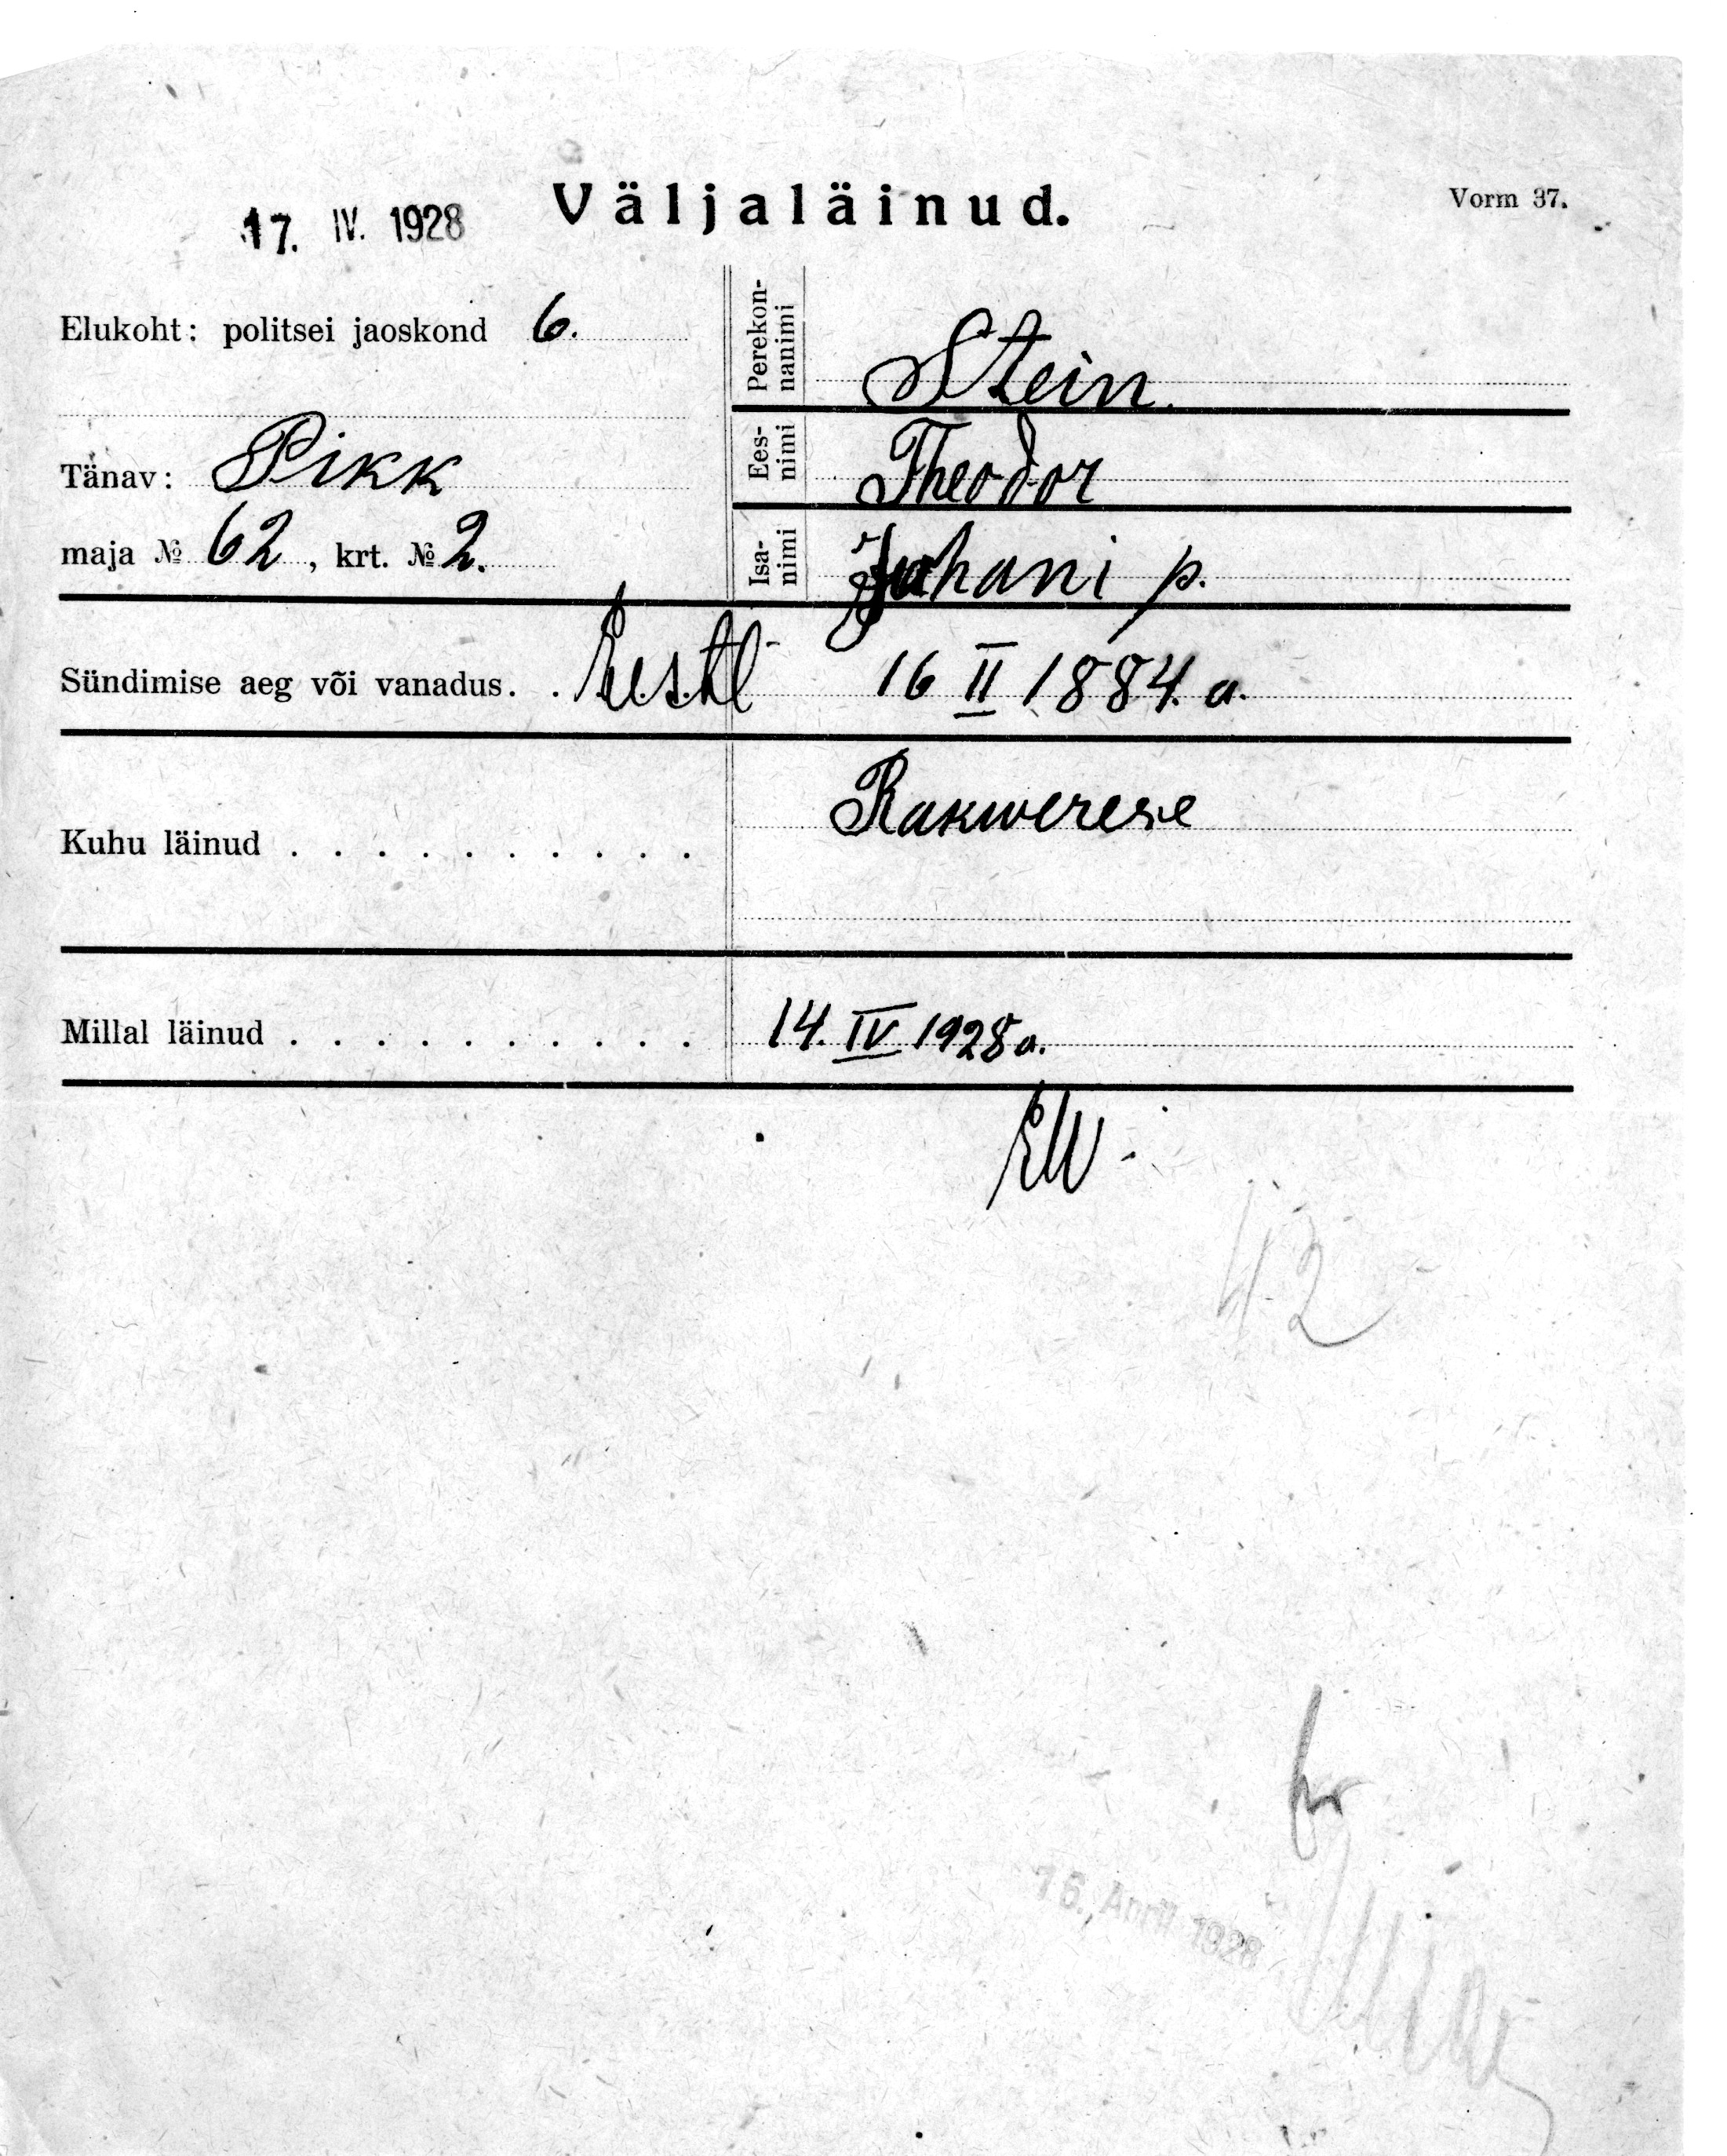 Väljaläinud.
Vorm 37.
17. IV. 1928
Elukoht: politsei jaoskond 6.
Perekonnanimi Stein.
Tänav: Pikk
Eesnimi Theodor
maja № 62, krt. № 2.
Isanimi Juhani p.
Sündimise aeg või vanadus. . Eestl 16 II 1884. a.
Kuhu läinud . . . . . . . . . . Rakwerese
Millal läinud . . . . . . . . . . 14. IV 1928 a.
EW.
42
16. April 1928